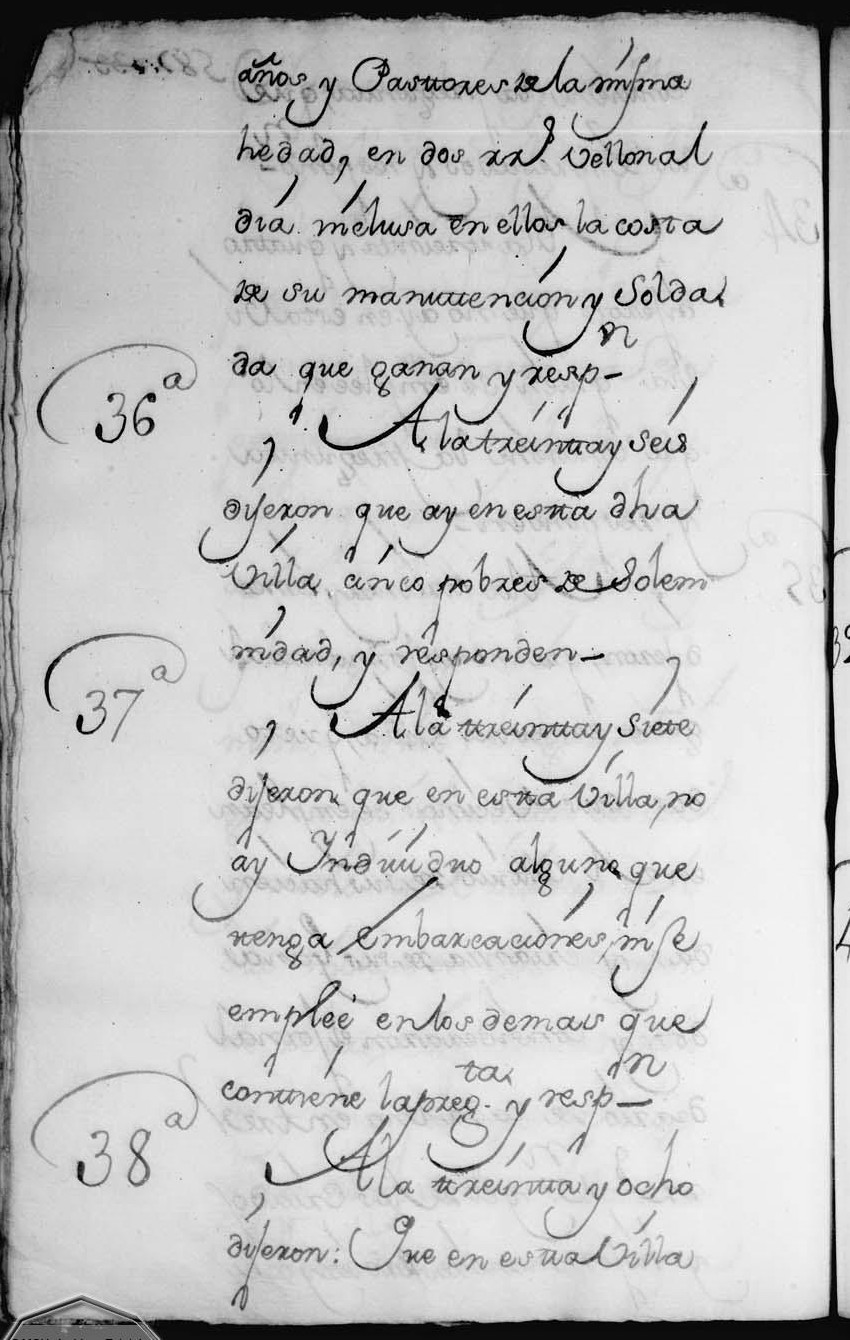 años, y Pastores de la misma
hedad, en dos rr.s Vellon al
dia inclusa en ellos la costa
de su manutencion y Solda
da que ganan y resp.n
36a
A la treinta y seis
dijeron que ay en esta dha
Villa cinco pobres de Solem
nidad, y responden
37a
A la treinta y siete
dijeron que en esta Villa, no
ay Indiuiduo alguno que
tenga embarcaciones, ni se
empleé en los demas que
contiene la preg.ta y resp.n
38a
A la treinta y ocho
dijeron: Que en esta Villa